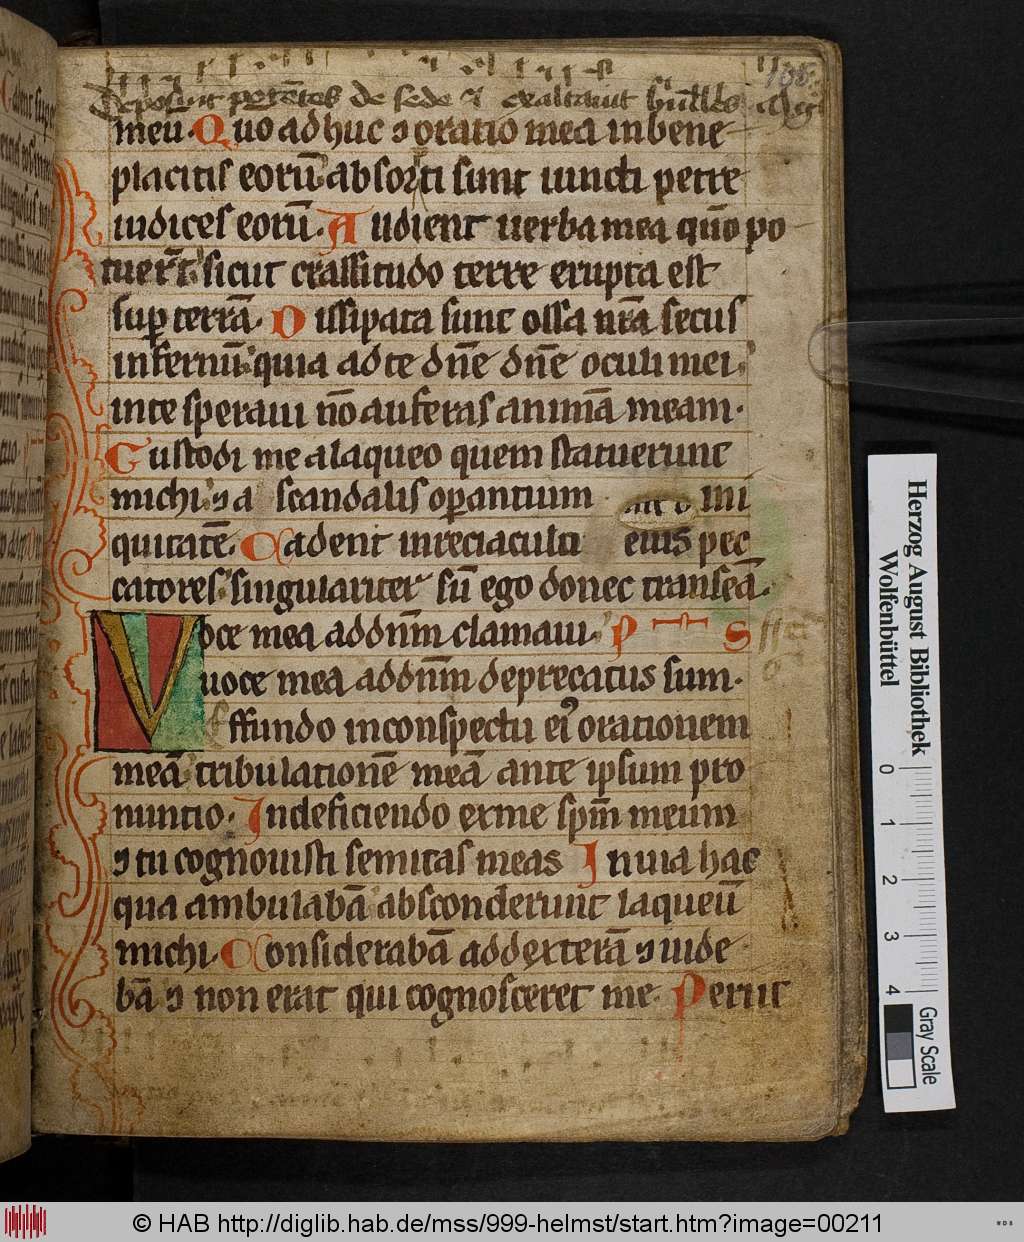 deposuit potētes de sede ⁊ exaltauit
meū. Quo adhuc ⁊ oratio mea in bene
placitis eorū absorti sunt iuncti petre
iudices eorū. Audient uerba mea qūo po
tuer̄t sicut crassitudo terre erupta est
sup terrā. Dissipata sunt ossa nr̄a secus
infernū quia ad te dn̄e dn̄e oculi mei
in te speraui nō auferas animā meam.
Custodi me a laqueo quem statuerunt
michi ⁊ a scandalis operantium ini
quitatē. Cadent in reciaculci eius pec
catores singulariter sū ego donec transeā.
Voce mea ad dn̄m clamaui. PS
uoce mea ad dn̄m deprecatus sum.
Effundo in conspectu ei᷒ orationem
meā tribulationē meā ante ipsum pro
nuntio. In deficiendo ex me sp̄m meum
⁊ tu cognouisti semitas meas In uia hac
qua ambulabā absconderunt laqueū
michi. Considerabā ad dexterā ⁊ uide
bā ⁊ non erat qui cognosceret me. Periit
Herzog August Bibliothek
Wolfenbüttel
0 1 2 3 4
Gray Scale
© HAB http://diglib.hab.de/mss/999-helmst/start.htm?image=00211